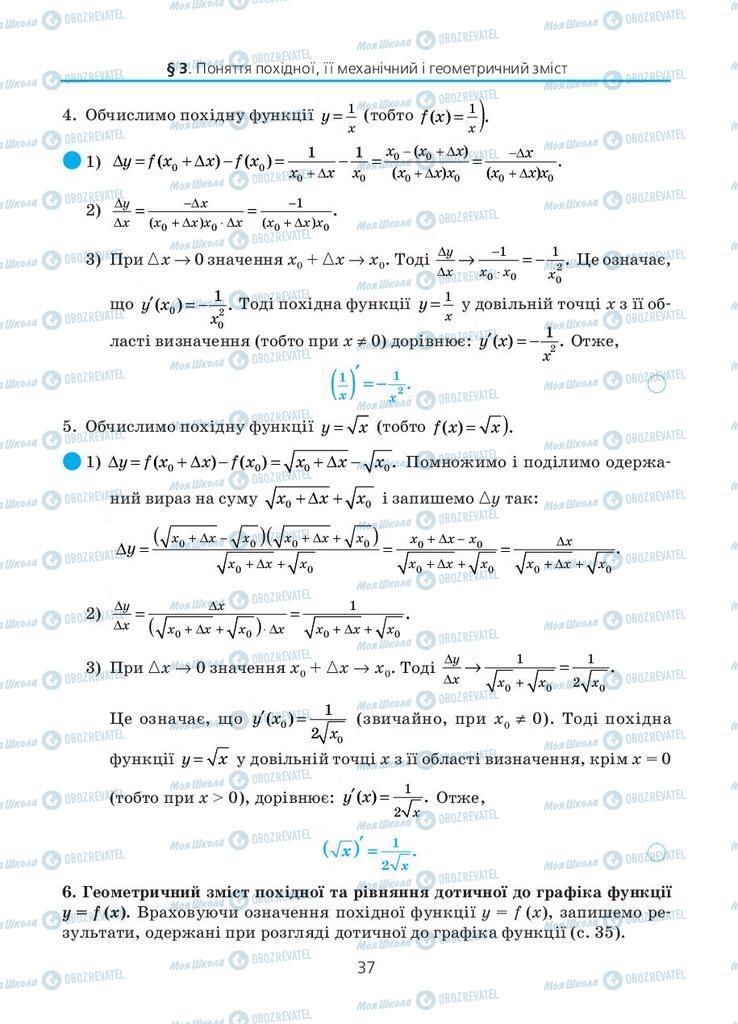 § 3. Поняття похідної, її механічний і геометричний зміст
4. Обчислимо похідну функції y = 1/x (тобто f(x) = 1/x).
1) Δy = f(x₀ + Δx) – f(x₀) = 1/(x₀ + Δx) – 1/x₀ = (x₀ – (x₀ + Δx))/((x₀ + Δx)x₀) = –Δx/((x₀ + Δx)x₀).
2) Δy/Δx = –Δx/((x₀ + Δx)x₀ · Δx) = –1/((x₀ + Δx)x₀).
3) При △x → 0 значення x₀ + △x → x₀. Тоді Δy/Δx → –1/(x₀ · x₀) = –1/x₀². Це означає,
що y′(x₀) = –1/x₀². Тоді похідна функції y = 1/x у довільній точці x з її об-
ласті визначення (тобто при x ≠ 0) дорівнює: y′(x) = –1/x². Отже,
(1/x)′ = –1/x².
5. Обчислимо похідну функції y = √x (тобто f(x) = √x).
1) Δy = f(x₀ + Δx) – f(x₀) = √(x₀ + Δx) – √x₀. Помножимо і поділимо одержа-
ний вираз на суму √(x₀ + Δx) + √x₀ і запишемо △y так:
Δy = (√(x₀ + Δx) – √x₀)(√(x₀ + Δx) + √x₀)/(√(x₀ + Δx) + √x₀) = (x₀ + Δx – x₀)/(√(x₀ + Δx) + √x₀) = Δx/(√(x₀ + Δx) + √x₀).
2) Δy/Δx = Δx/((√(x₀ + Δx) + √x₀) · Δx) = 1/(√(x₀ + Δx) + √x₀).
3) При △x → 0 значення x₀ + △x → x₀. Тоді Δy/Δx → 1/(√x₀ + √x₀) = 1/(2√x₀).
Це означає, що y′(x₀) = 1/(2√x₀) (звичайно, при x₀ ≠ 0). Тоді похідна
функції y = √x у довільній точці x з її області визначення, крім x = 0
(тобто при x > 0), дорівнює: y′(x) = 1/(2√x). Отже,
(√x)′ = 1/(2√x).
6. Геометричний зміст похідної та рівняння дотичної до графіка функції
y = f (x). Враховуючи означення похідної функції y = f (x), запишемо ре-
зультати, одержані при розгляді дотичної до графіка функції (с. 35).
37